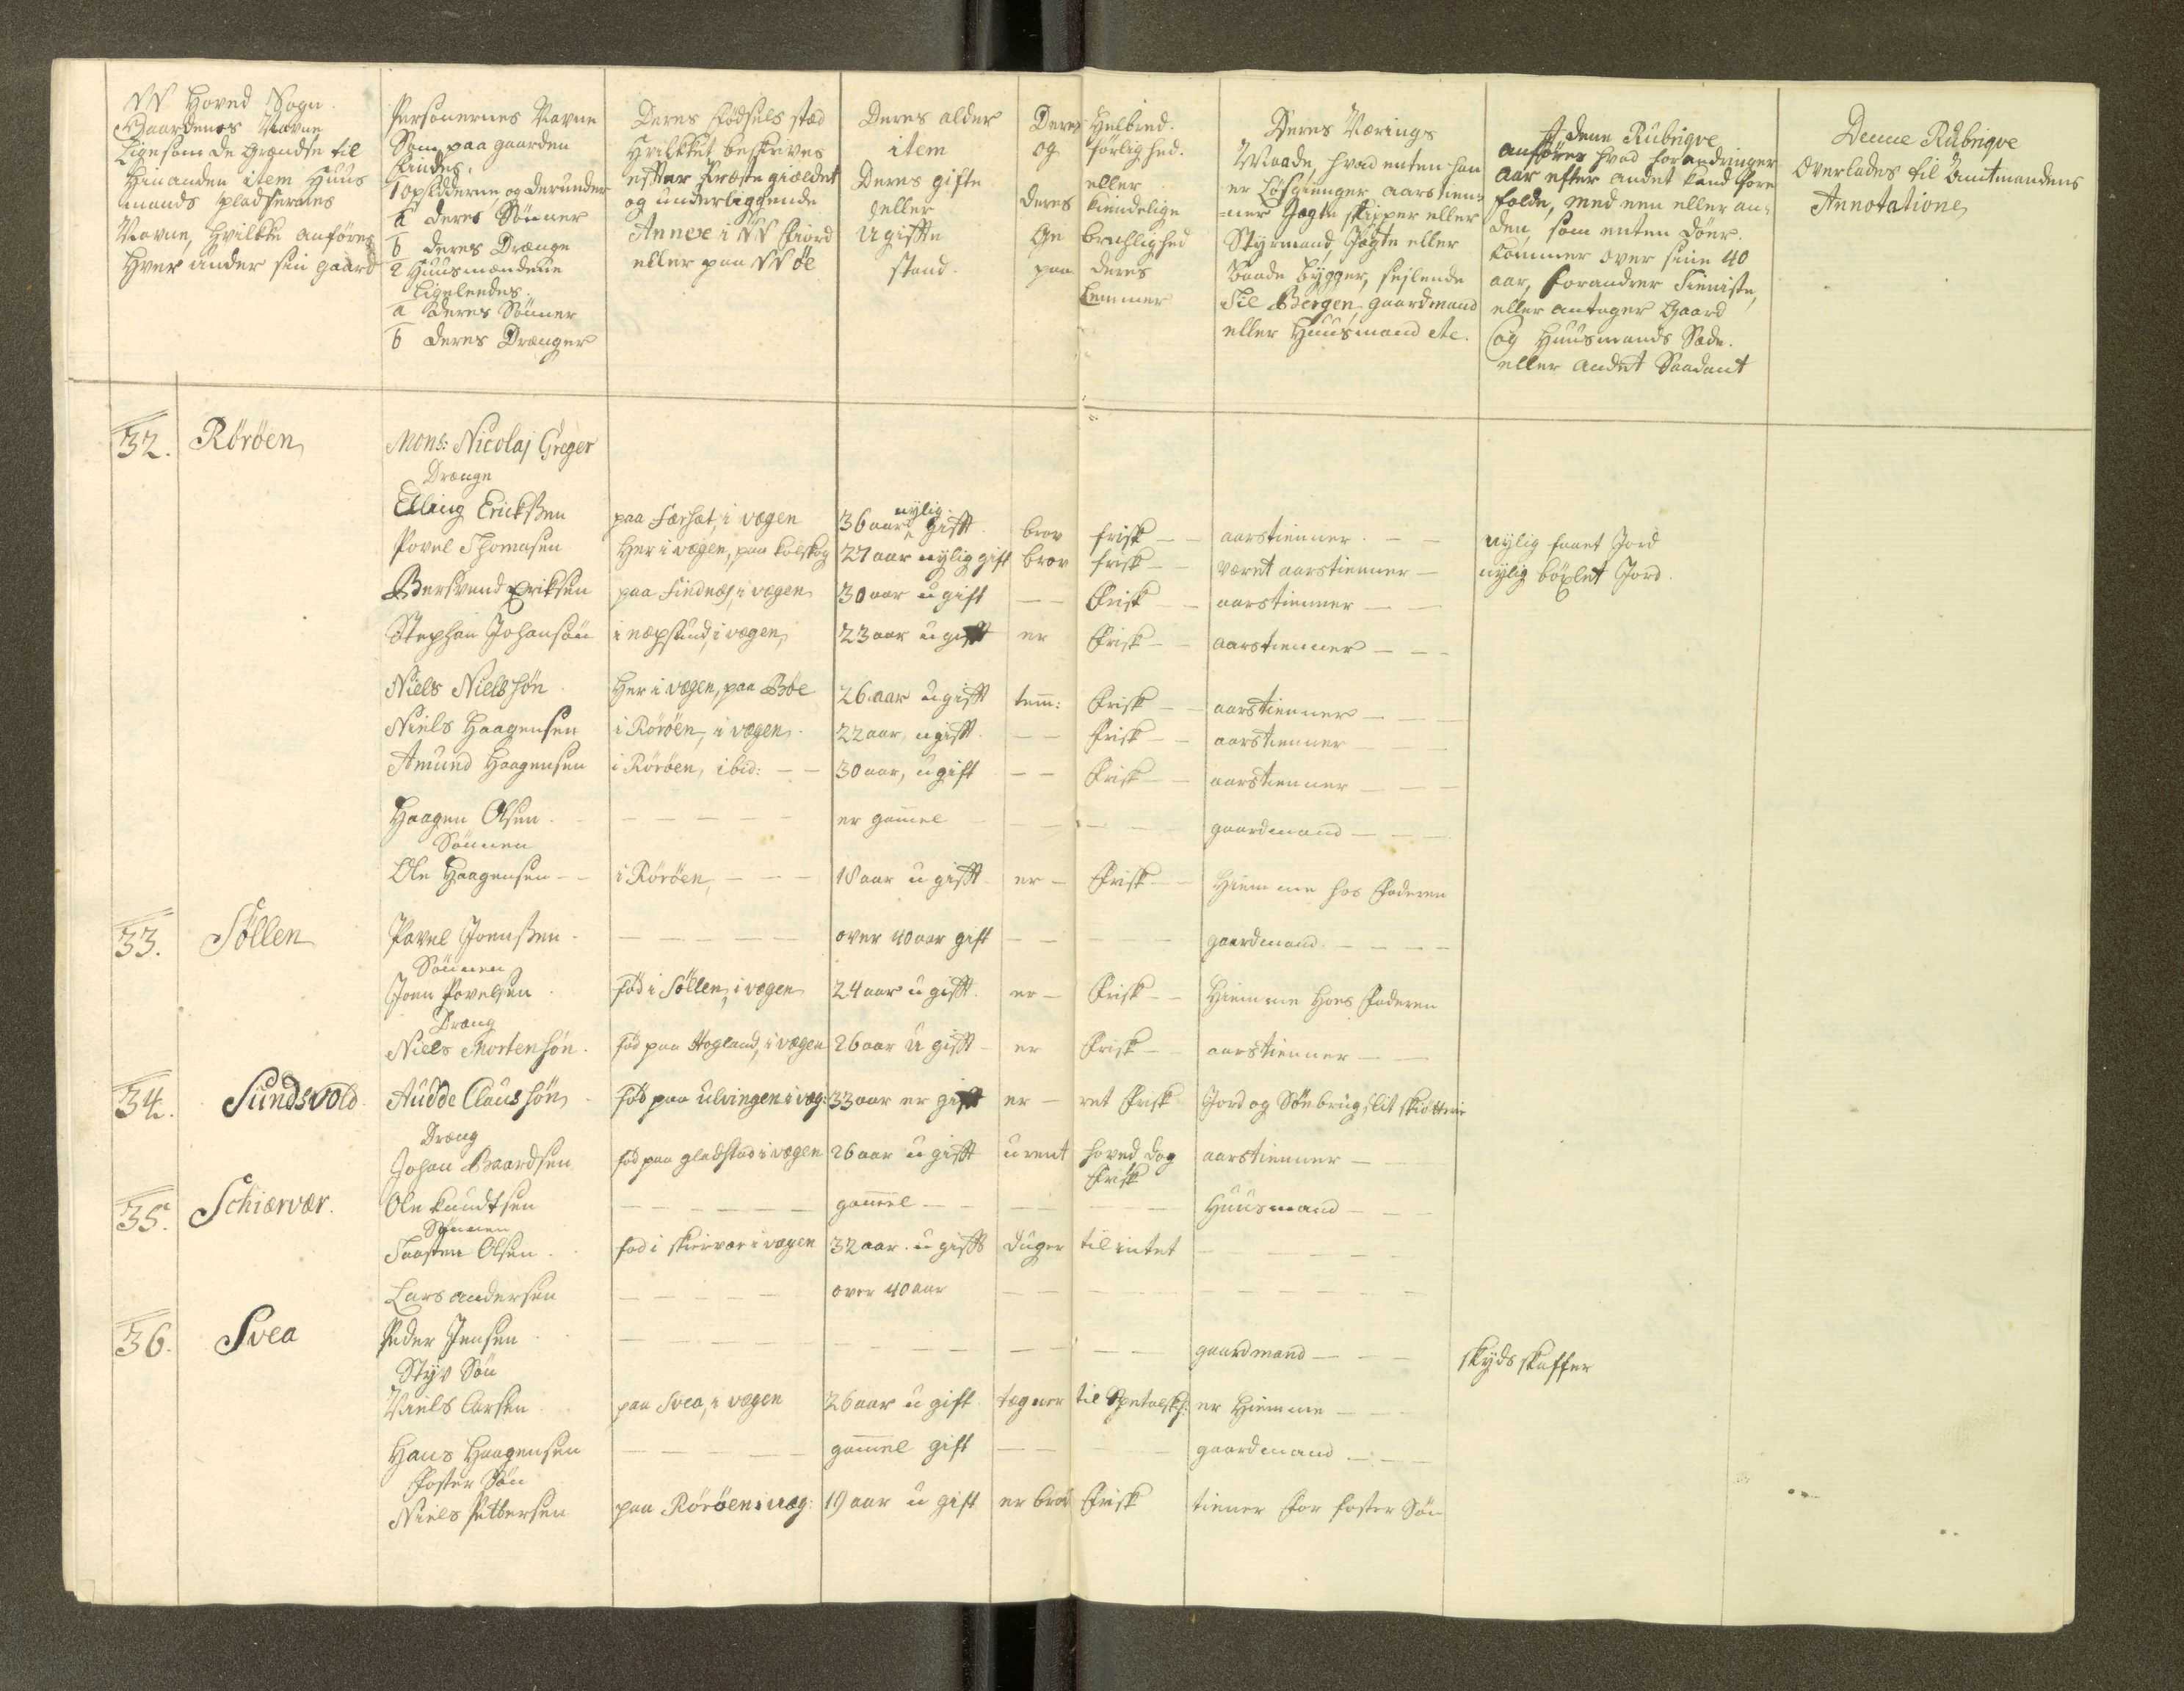 NN Hoved Sogn.
Gaardenes Navne
Ligesom de Grændse til
Hinanden item Huus
mands pladsernes
Navne, hvilke anføres
hver under sin gaard
Personernes Navne
Som paa gaarden
findes.
1 opsidderne, og derunder
a deres Sønner
b deres Drænge
2 Huusmændene
Ligeledes.
a deres Sønner
b deres Drænger
Deres fødsels stæd
hvilket beskrives
efter Præste gieldet
og underliggende
Annexe i NN fiord
eller paa NN øe
Deres alder
item
Deres gifte
eller
ugifte
stand.
Deres Helbred.
og førlighed.
eller
deres kiendelige
brøchlighed
paa deres
Lemmer
Deres Nærings
Maade, hvad enten han
er Løsgiænger aarstien-
ner Jægte skipper eller
Styrmand, Jægte eller
Baade bygger, sejlende
Til Bergen, gaardmand
eller Huusmand etc.
I dene Rubriqve
anføres hvad forandringer
aar efter andet kand fore
falde, med een eller an-
den, som enten døer.
kommer over sine 40
aar, forandrer Tieniste,
eller antager Gaard
og Huusmands Sæde.
eller andet Saadant
Denne Rubriqve
overlades til Amtmandens
Annotationer
32. Rørøen Mons: Nicolaj Greger
Drænge
Elling Ericksen paa Færset, i vægen 36 aar nylig gifft brav frisk aarstienner nylig faaet Jord
Povel Thomasen her i vægen, paa kolskog 27 aar nylig gift brav frisk været aarstienner nylig böxlet Jord.
Bersvend Eriksen paa Findnæs, i vægen 30 aar ugift Frisk aarstienner
Stephan Johansøn i næpsund, i vægen, 23 aar ugifft er Frisk aarstienner
Niels Nielsøn her i vægen, paa Bøe 26 aar ugifft tem: Frisk aarstienner
Niels Haagensen i Rørøen, i vægen. 22 aar ugifft. Frisk aarstienner
Amund Haagensen i Rørøen, ibid: 30 aar, ugift Frisk aarstienner
Haagen Olsen er gammel gaardmand
Sønnen
Ole Haagensen i Rørøen, 18 aar ugifft er Frisk Hiemme hos Faderen
33. Søllen Povel Joensen over 40 aar gift gaardmand
Sønnen
Joen Povelsen fød i Søllen, i vægen 24 aar ugifft er Frisk Hiemme hoes Faderen
Dræng
Niels Mortensøn fød paa Hogland, i vægen 26 aar ugifft er Frisk aarstienner
34. Sundsvold Audde Claussøn fød paa Ulvingen i væg: 33 aar er gifft er ret Frisk Jord og Söebrug, lit skiøtterie
Dræng
Johan Baardsen fød paa gladstad i vægen 26 aar ugifft urent hoved dog aarstienner
Frisk
35. Schiærvær. Ole Knudtsen gammel Huusmand
Sønnen
Taasten Olsen fød i skiervær i vægen 32 aar ugifft duger til intet
Lars Andersen over 40 aar
36. Svea Peder Jensen gaardmand skydsskaffer
Styv Søn
Niels Larsen paa Svea, i vægen 26 aar ugift tegner til Spetalsk: er Hiemme
Hans Haagensen gammel gift gaardmand
Foster Søn
Niels Pettersen paa Rørøen i væg: 19 aar ugift er brav Frisk tiener for foster Søn